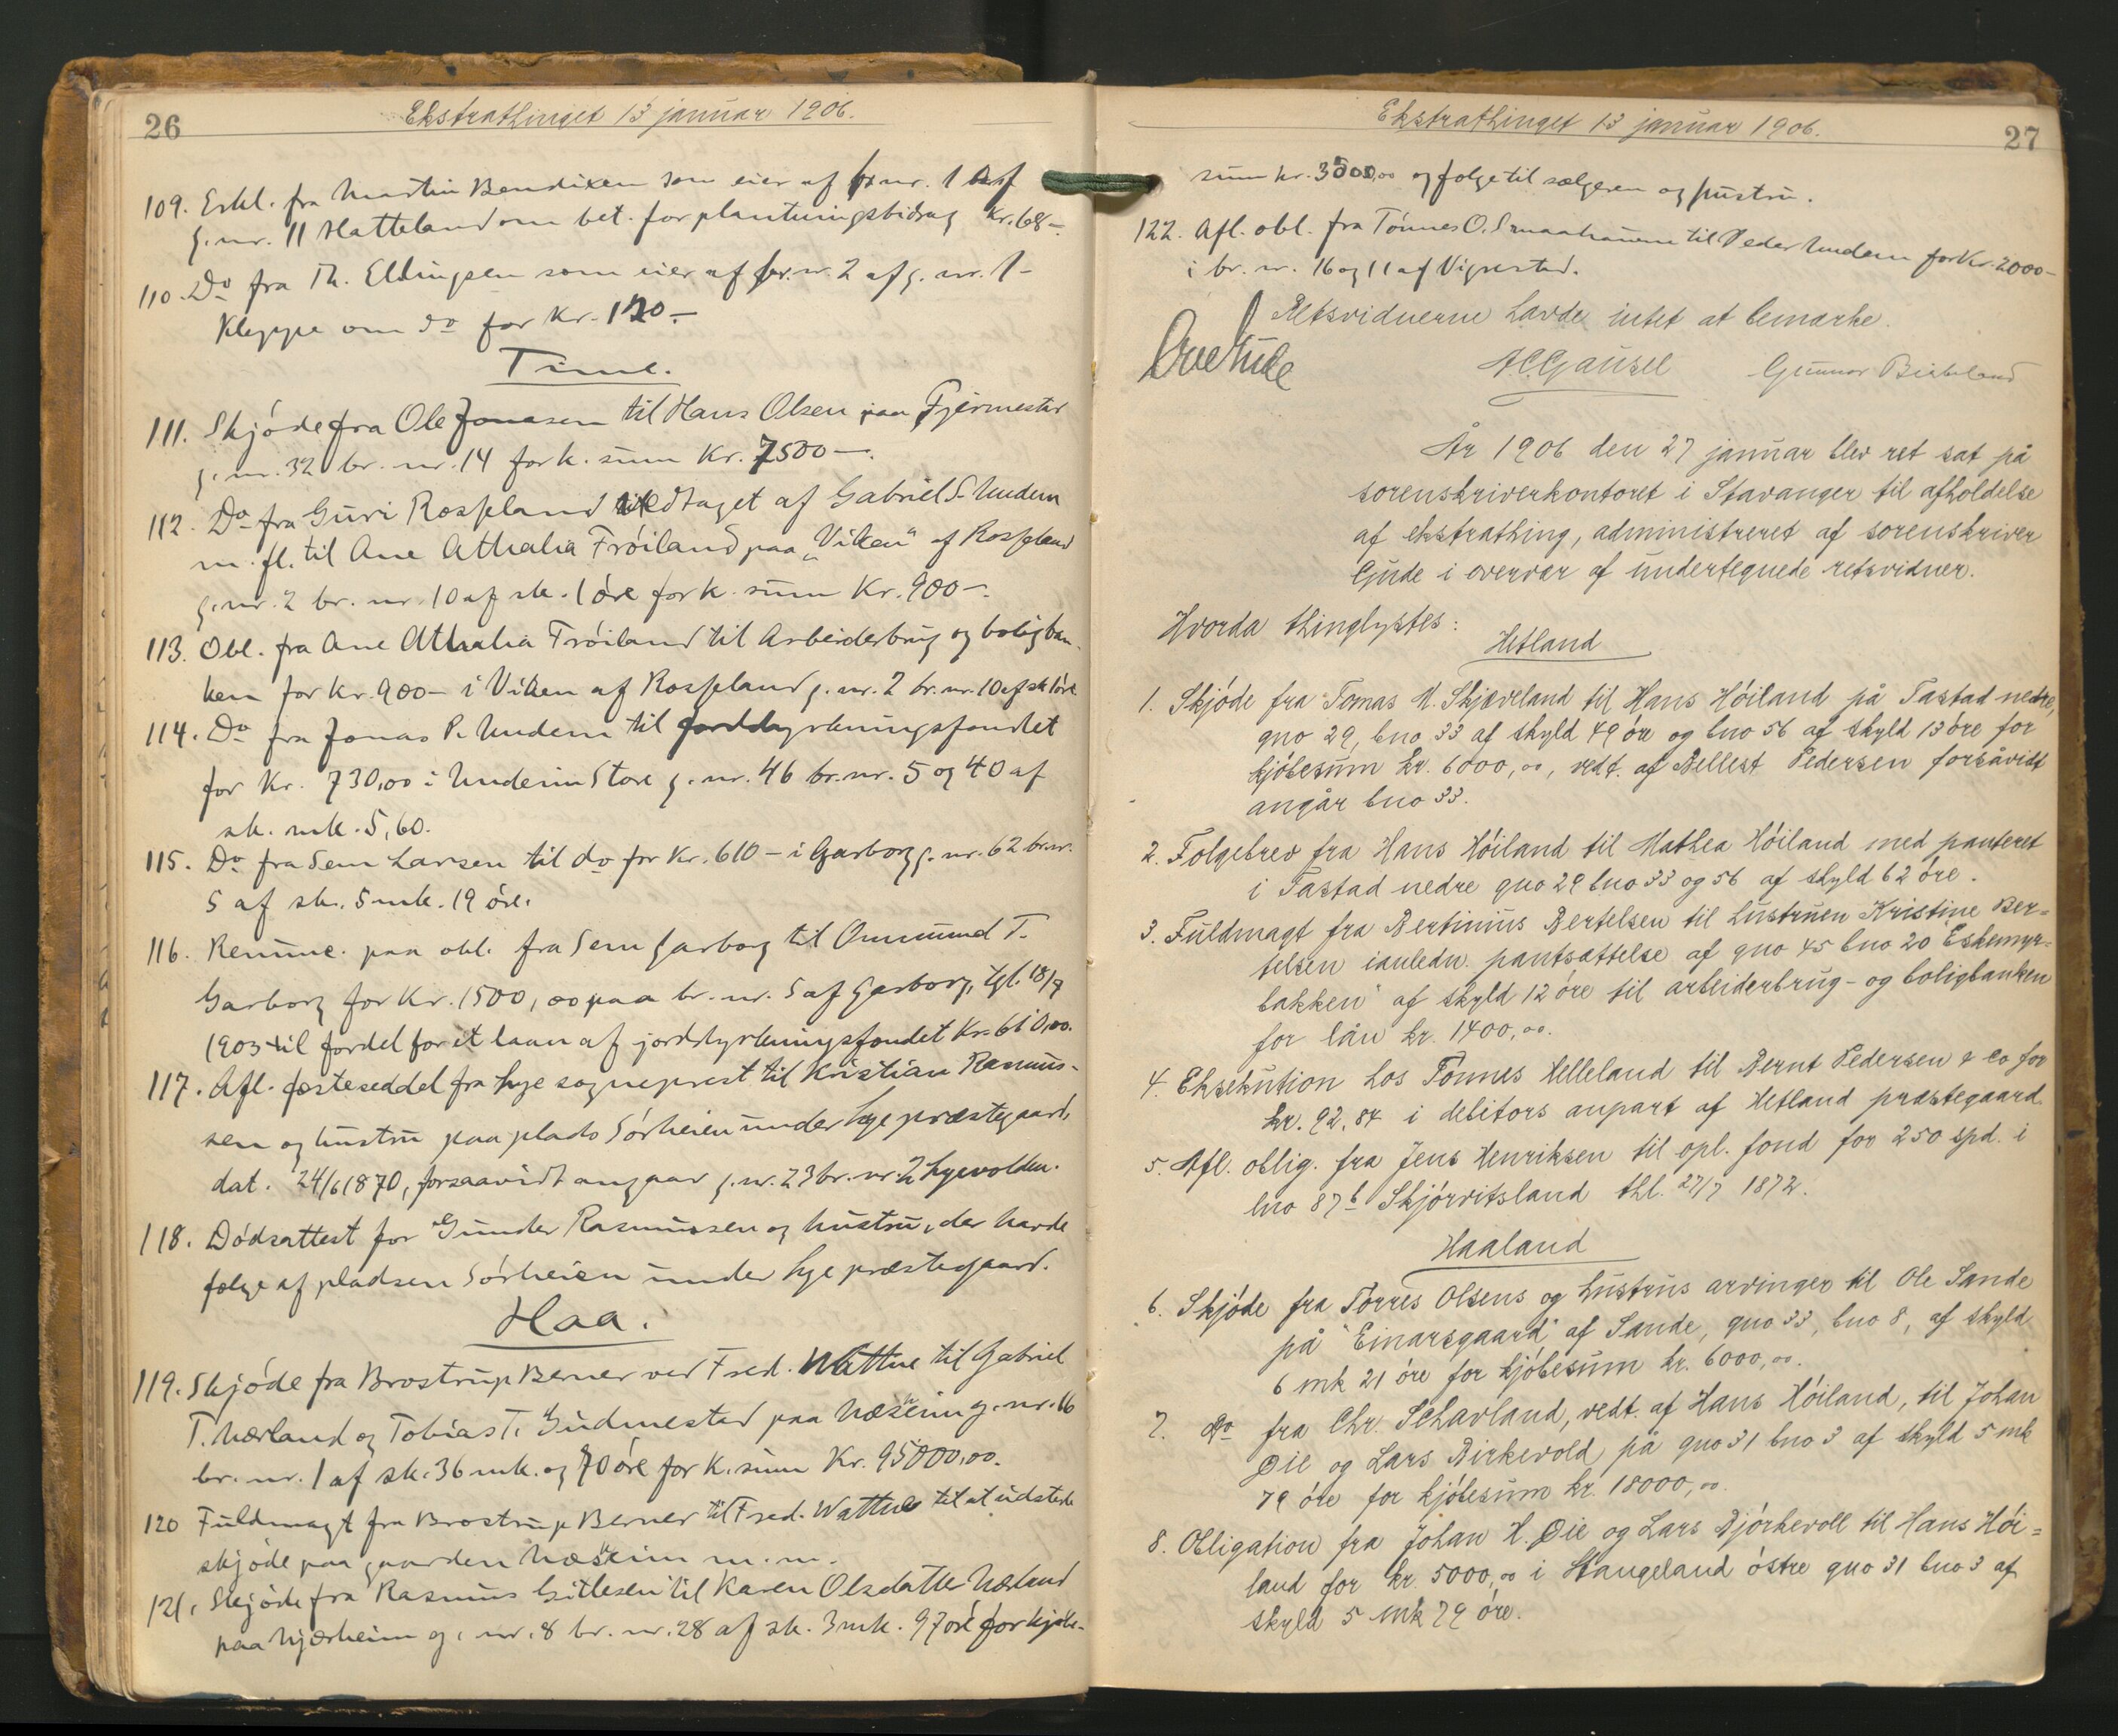 26
Ekstrathinget 13 januar 1906.
109. Erkl. fra Martin Bendixen som eier af br. nr. 1 af
g. nr. 11 Hatteland om bet. for plantningsbidrag Kr. 68 –.
110. Do fra Th. Ellingsen som eier af br. nr. 2 af g. nr. 1 –
Kleppe om do for Kr. 120 –
Time.
111. Skjøde fra Ole Jonasen til Hans Olsen paa Fjermestad
g. nr. 32 br. nr. 14 for k. sum Kr. 7500 –.
112. Do fra Guri Rosseland vedtaget af Gabriel S. Undem
m. fl. til Ane Athalia Frøiland paa „Viken" af Rosseland
g. nr. 2 br. nr. 10 af sk. 1 øre for k. sum Kr. 900 –.
113. Obl. fra Ane Athalia Frøiland til Arbeiderbrug og boligban-
ken for Kr. 900 – i Viken af Rosseland g. nr. 2 br. nr. 10 af sk 1 øre
114. Do fra Jonas P. Undem til jorddyrkningsfondet
for Kr. 730,00 i Undeim Store g. nr. 46 br. nr. 5 og 40 af
sk. mk. 5,60.
115. Do fra Sem Larsen til do for Kr. 610 – i Garborg g. nr. 62 br. nr.
5 af sk. 5 mk. 19 øre.
116. Renunc. paa obl. fra Sem Garborg til Ommund T.
Garborg for Kr. 1500,00 paa br. nr. 5 af Garborg, tgl. 18/7
1903 til fordel for et laan af jorddyrkningsfondet Kr. 610,00.
117. Afl. fæsteseddel fra Lye sogneprest til Kristian Rasmus-
sen og hustru paa plads Sørheien under Lye præstegaard,
dat. 24/6 1870, forsaavidt angaar g. nr. 23 br. nr. 2 Lyevolden.
118. Dødsattest for Gunder Rasmussen og hustru, der havde
følge af pladsen Sørheien under Lye præstegaard.
Haa.
119. Skjøde fra Brostrup Berner ved Fred. Wattne til Gabriel
T. Nærland og Tobias T. Gudmestad paa Næsheim g. nr. 16
br. nr. 1 af sk. 36 mk. og 70 øre for k. sum Kr. 95000,00.
120 Fuldmagt fra Brostrup Berner til Fred. Wattne til at udstede
skjøde paa gaarden Næsheim m. m.
121, Skjøde fra Rasmus Gitlesen til Karen Olsdatter Næland
paa Njærheim g. nr. 8 br. nr. 28 af sk. 3 mk. 97 øre for kjøbe-
Ekstrathinget 13 januar 1906.
27
sum kr. 3500,00 og følge til sælgeren og hustru.
122. Afl. obl. fra Tønnes O. Smaahaunene til Peder Undem for Kr. 2000 –
i br. nr. 16 og 11 af Vigrestad.
Retsvidnerne havde intet at bemærke.
Ove Gude
A C Gausel
Gunnar Birkeland
År 1906 den 27 januar blev ret sat på
sorenskriverkontoret i Stavanger til afholdelse
af ekstrathing, administreret af sorenskriver
Gude i overvær af undertegnede retsvidner.
Hvorda thinglystes:
Hetland
1. Skjøde fra Tomas M. Skjæveland til Hans Høiland på Tastad nedre,
gno 29, bno 33 af skyld 49 øre og bno 56 af skyld 13 øre for
kjøbesum kr. 6000,00, vedt. af Bellest Pedersen forsåvidt
angår bno 33.
2. Følgebrev fra Hans Høiland til Mathea Høiland med panteret
i Tastad nedre gno 29 bno 33 og 56 af skyld 62 øre.
3. Fuldmagt fra Bertinius Bertelsen til hustruen Kristine Ber=
telsen i anledn. pantsættelse af gno 45 bno 20 "Eskemyr-
bakken" af skyld 12 øre til arbeiderbrug- og boligbanken
for lån kr. 1400,00.
4. Eksekution hos Tønnes Helleland til Bernt Pedersen & Co for
kr. 92,84 i debitors anpart af Hetland præstegaard.
5. Afl. oblig. fra Jens Henriksen til opl. fond for 250 spd. i
lno 87b Skjørvitsland thl. 27/7 1872.
Haaland
6. Skjøde fra Torres Olsens og hustrus arvinger til Ole Sande
på "Einarsgaard" af Sande, gno 33, bno 8, af skyld
6 mk 21 øre for kjøbesum kr. 6000,00.
7. do fra Chr. Schavland, vedt. af Hans Høiland, til Johan
Øie og Lars Birkevold på gno 31 bno 3 af skyld 5 mk
79 øre for kjøbesum kr. 18000,00.
8. Obligation fra Johan H. Øie og Lars Bjørkevoll til Hans Høi=
land for kr. 5000,00 i Stangeland østre gno 31 bno 3 af
skyld 5 mk 79 øre.